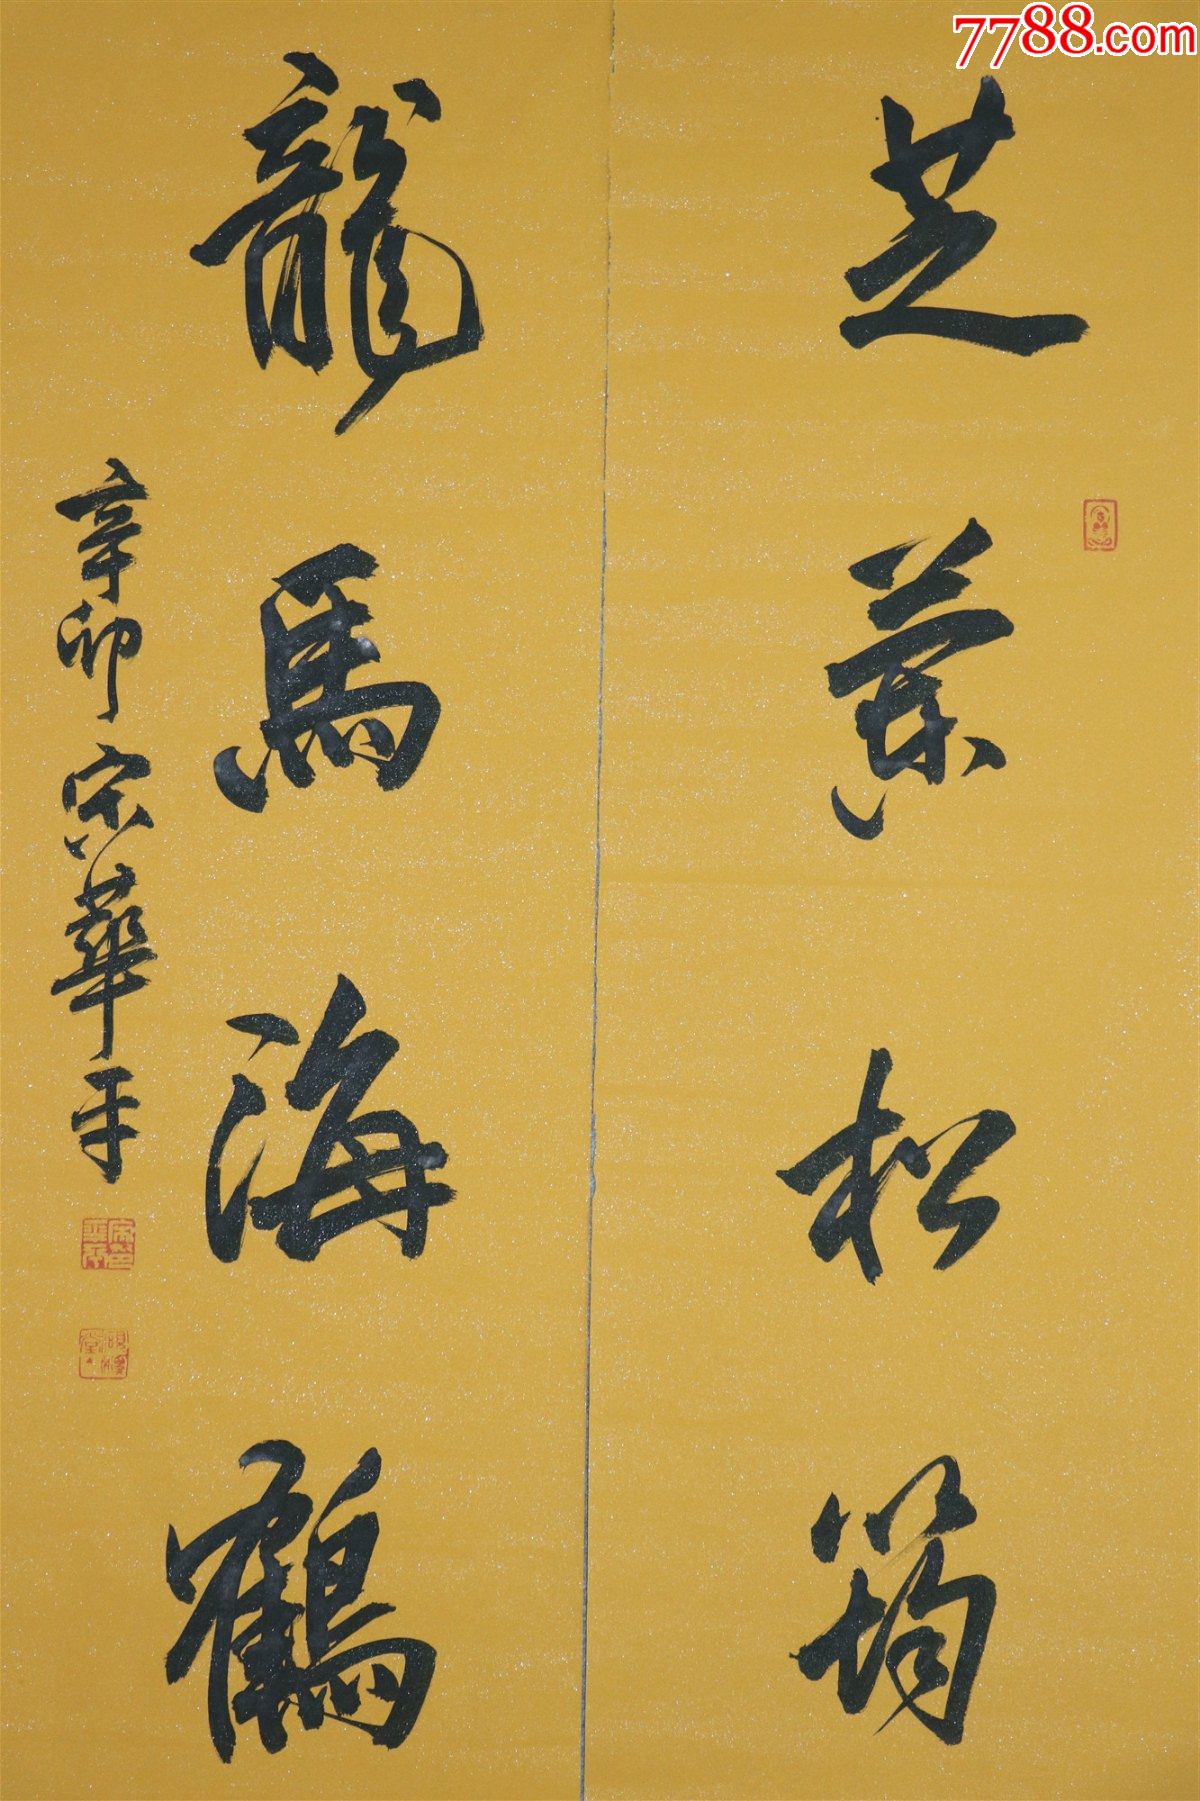 7788.com
芝蘭松筠
龍馬海鶴
辛卯宋華平